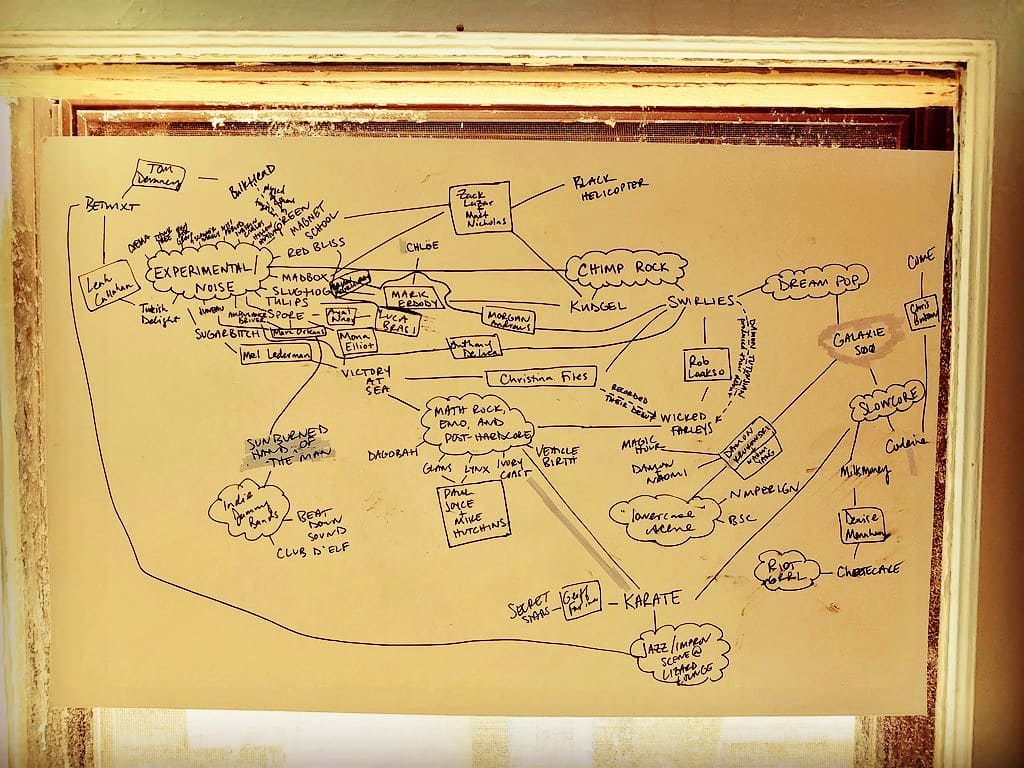 Tom
BETWIXT
BulkHead
GREEN
MAGNET
SCHOOL
Zack
Lazar
+
Matt
Nicholas
BLACK
HELICOPTER
RED BLISS
CHLÖE
Leah
Callahan
EXPERIMENTAL/
NOISE
MADBOX
SLUGHOG
TULIPS
SPORE
MARK
ERDODY
CHIMP ROCK
KUDGEL
SWIRLIES
DREAM POP
COME
Chris
GALAXIE
500
Turkish
Delight
AMBULANCE
DRIVER
SUGARBITCH
Marc Orleans
LUCA
BRASI
MORGAN
Andrews
Mona
Elliot
Mel Lederman
Anthony
VICTORY
AT
SEA
Christina Files
RECORDED
THEIR DEBUT
Rob
Laakso
WICKED
FARLEYS
SLOWCORE
Codeine
MATH ROCK,
EMO, AND
POST-HARDCORE
DAGOBAH
GLANS
LYNX
IVORY
COAST
VEHICLE
BIRTH
PAUL
JOYCE
+
MIKE
HUTCHINS
SUNBURNED
HAND OF
THE MAN
Indie
Bands
BEAT
DOWN
SOUND
CLUB D'ELF
MAGIC
HOUR
DAMON
+
NAOMI
DAMON
KRUKOWSKI
+
NAOMI
YANG
"lowercase"
scene
NMPERIGN
BSC
MilkMoney
Denise
RIOT
GRRL
CHEESECAKE
SECRET
STARS
Geoff
Farina
KARATE
JAZZ/IMPROV
SCENE @
LIZARD
LOUNGE